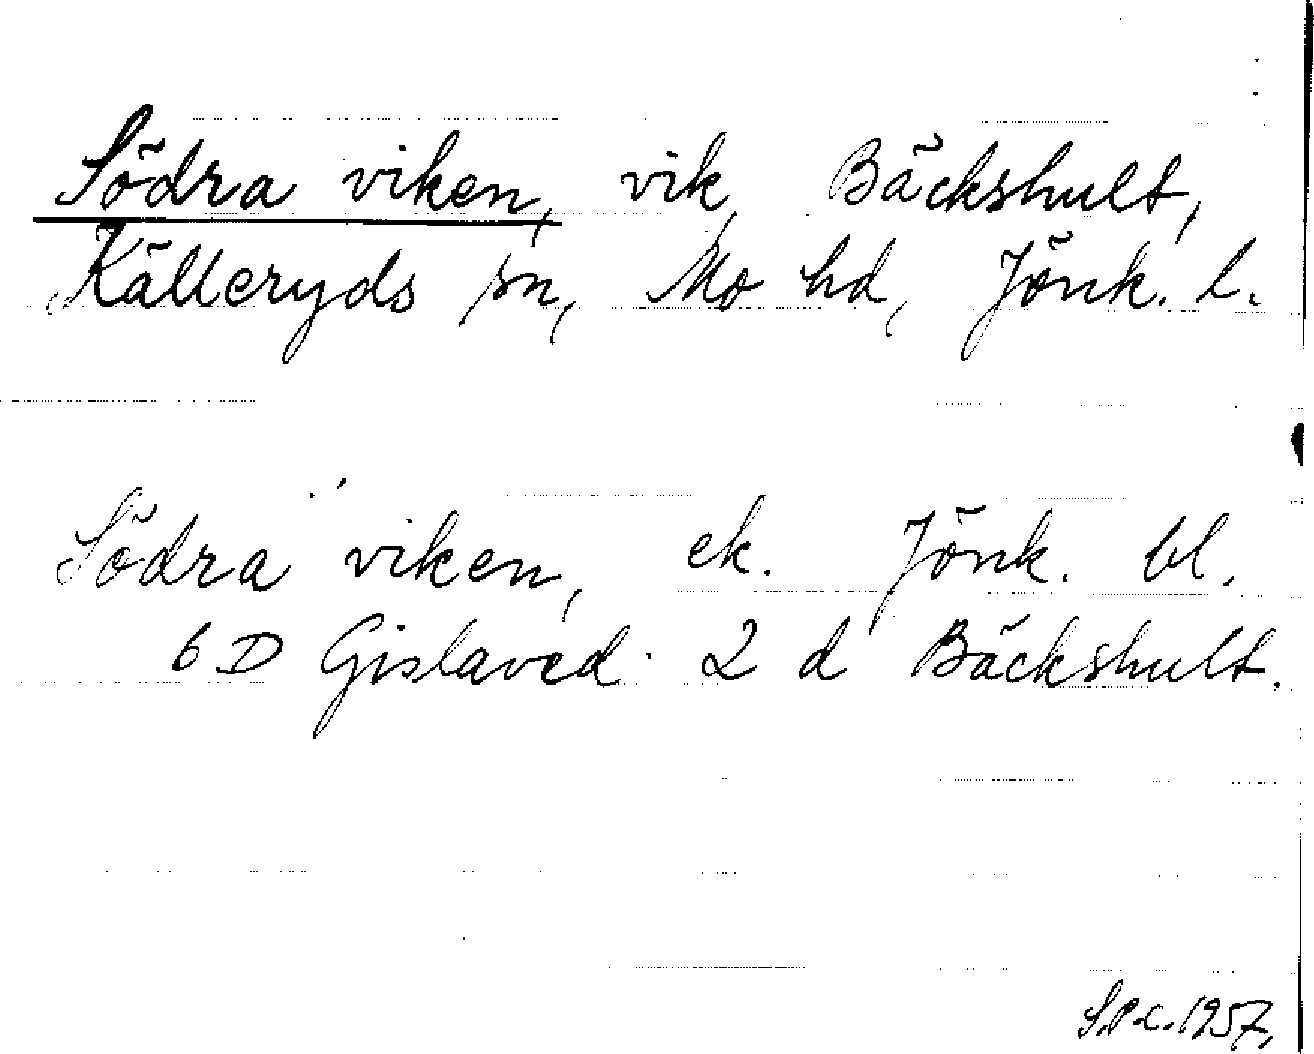 Södra viken, vik, Bäckshult,
Källeryds sn, Mo hd, Jönk. l.
Södra viken, ek. Jönk. bl.
6 D Gislaved 2 d Bäckshult.
S.P.C. 1957.